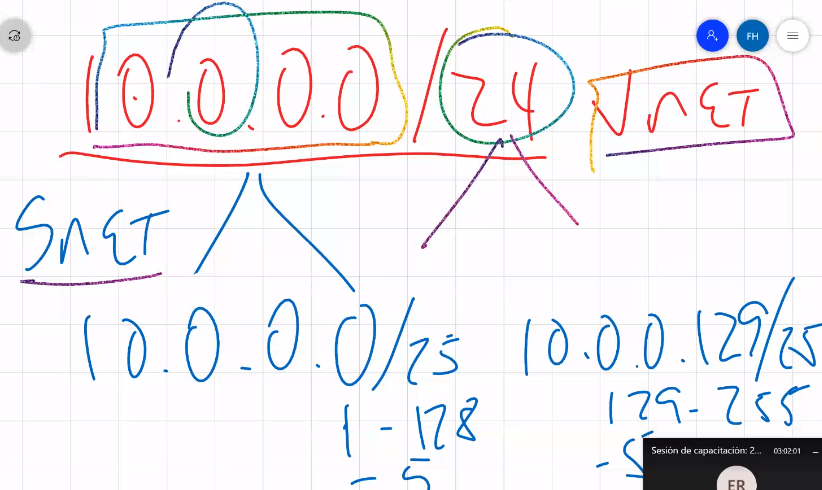 FH
10.0.0.0/24 VnET
SnET
10.0.0.0/25 10.0.0.129/25
1-128 129-255
-5 -5
Sesión de capacitación: 2... 03:02:01
ER